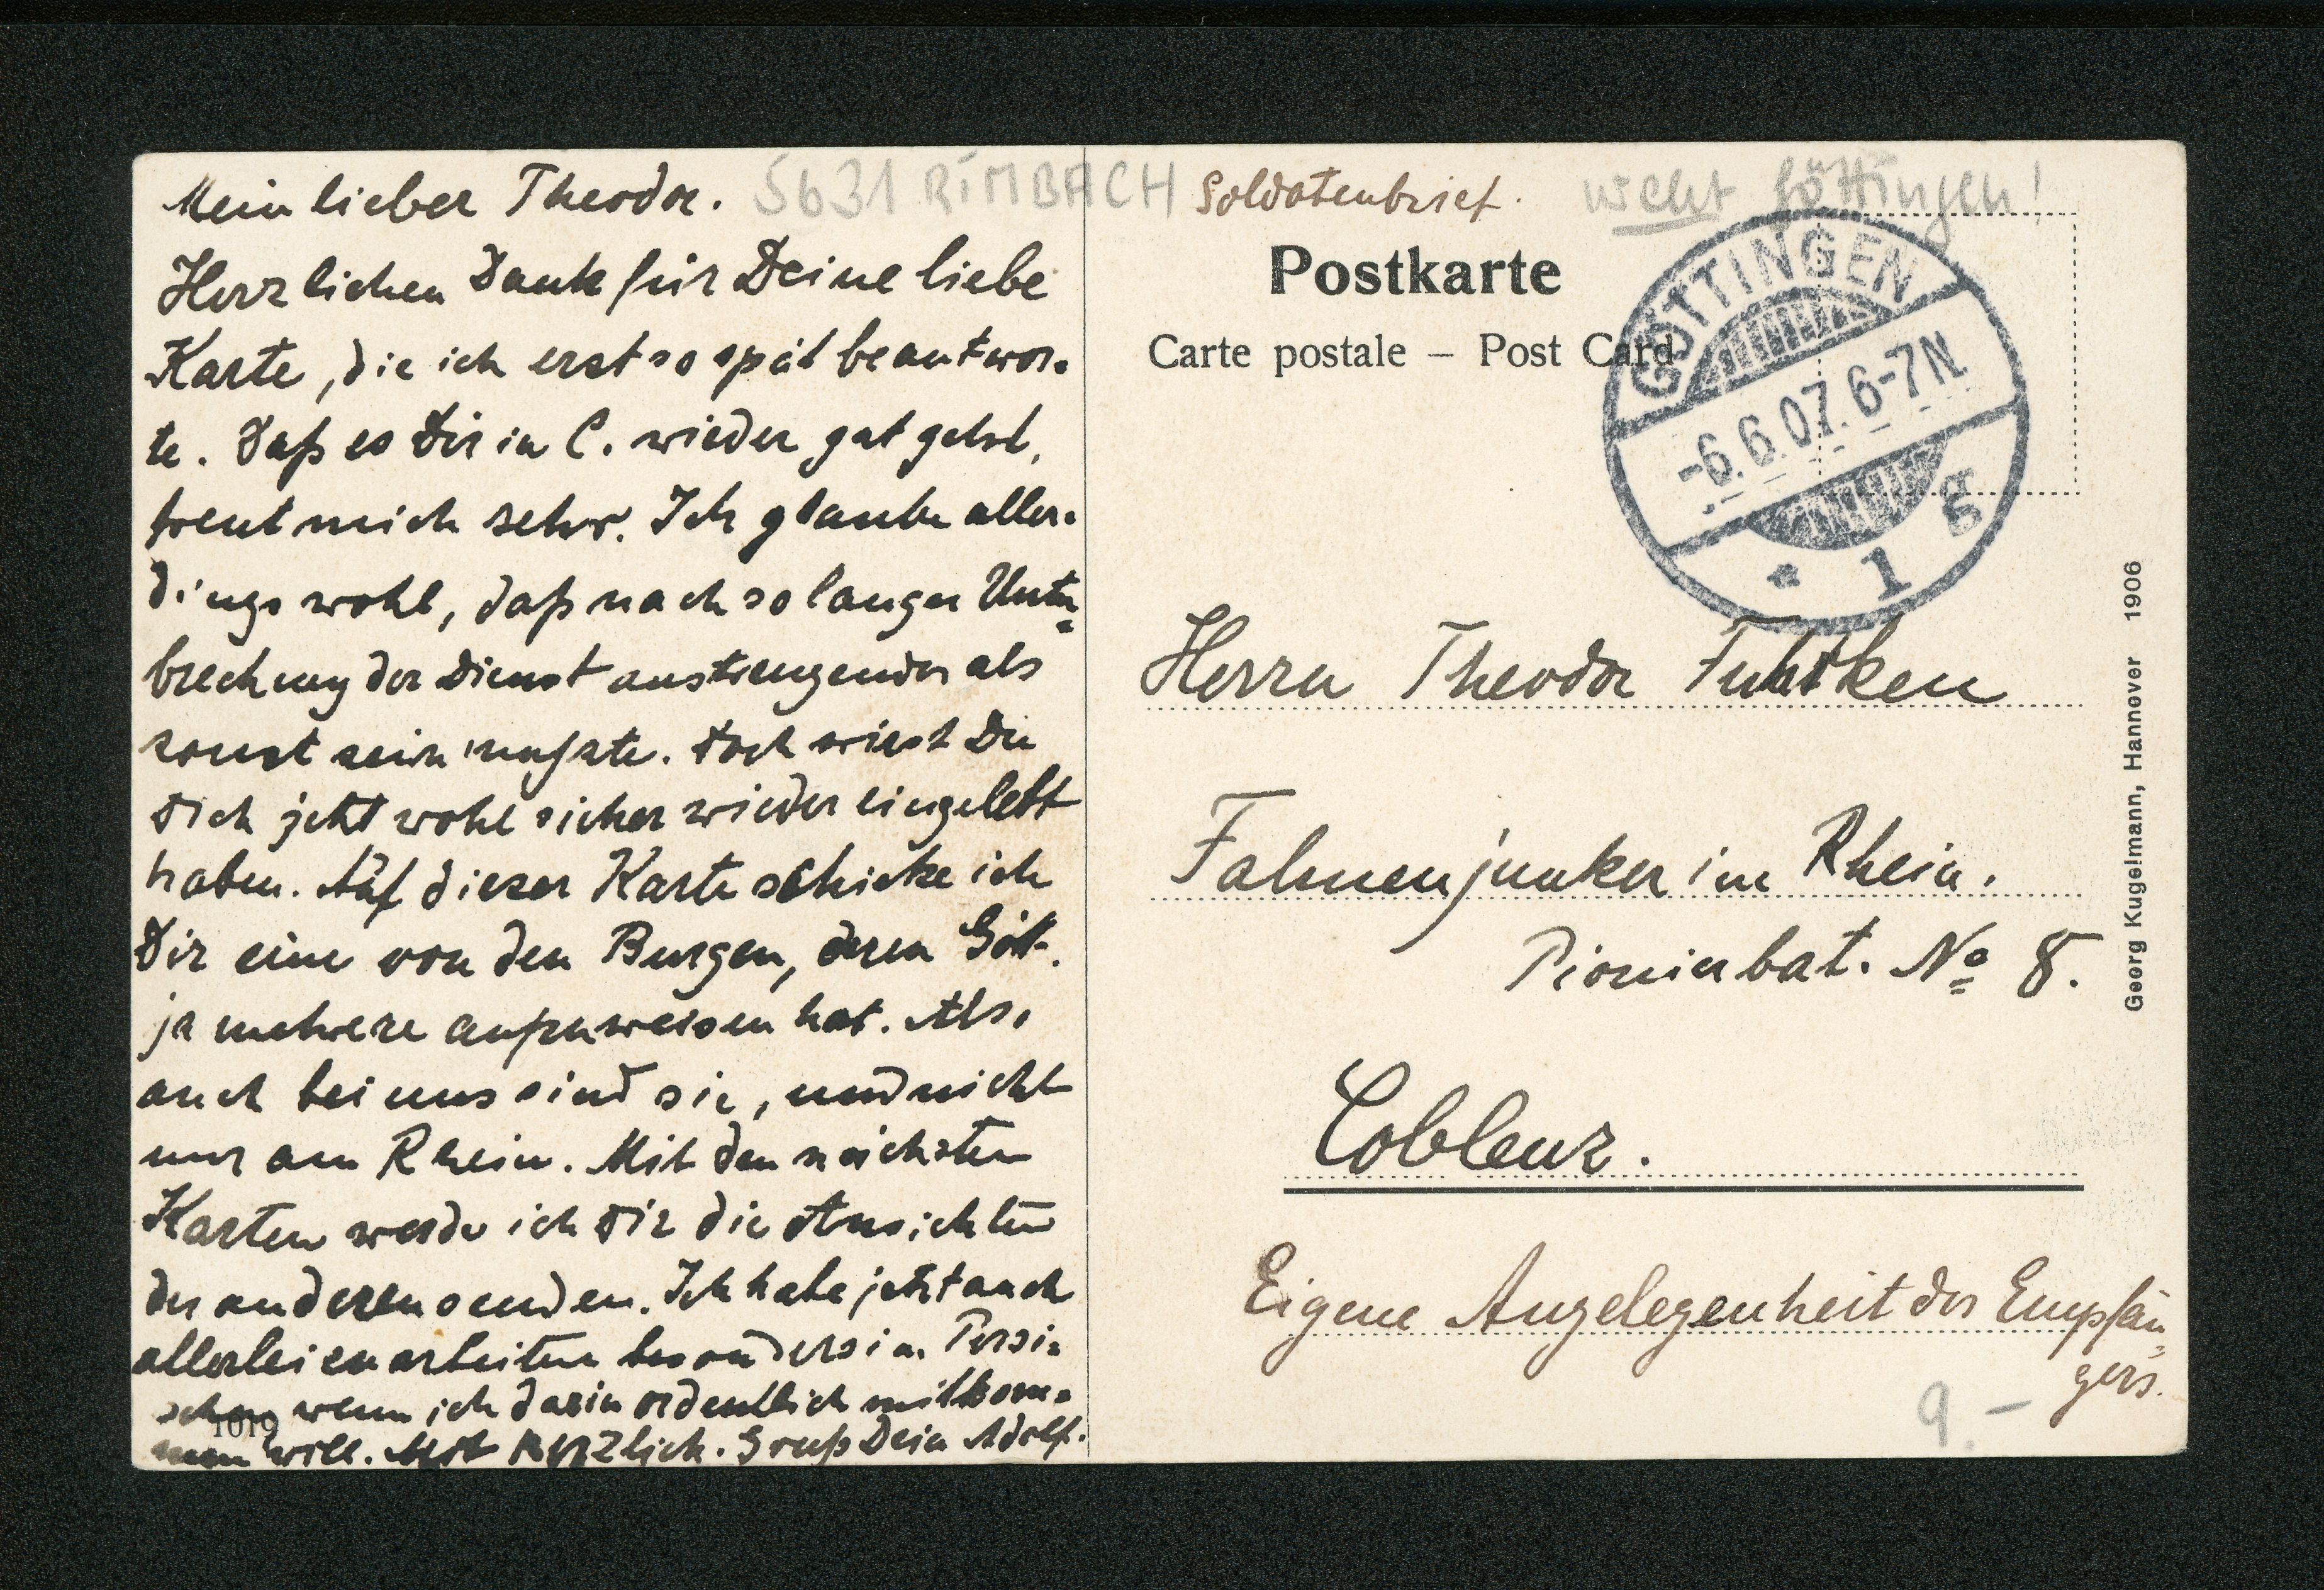 Mein lieber Theodor.
5631 RIMBACH
Herzlichen Dank für Deine liebe
Karte, die ich erst so spät beantwor-
te. Daß es Dir in C. wieder gut geht,
freut mich sehr. Ich glaube aller-
dings wohl, daß nach so langer Unter-
brechung der Dienst anstrengender als
sonst sein mußte. Doch wirst Du
Dich jetzt wohl sicher wieder eingelebt
haben. Auf dieser Karte schicke ich
Dir eine von den Burgen, deren Gött.
ja mehrere aufzuweisen hat. Also
auch bei uns sind sie, und nicht
nur am Rhein. Mit den nächsten
Karten werde ich Dir die Ansichten
der anderen senden. Ich habe jetzt auch
allerlei zu arbeiten besonders im Persi-
schen wenn ich darin ordentlich mitkom-
men will. Mit herzlich. Gruß Dein Adolf.
1019
Soldatenbrief.
nicht Göttingen!
Postkarte
Carte postale – Post Card
GÖTTINGEN
-6.6.07. 6-7N
* 1 g
Herrn Theodor
Fahnenjunker im Rhein.
Pionierbat. No 8.
Coblenz.
Eigene Angelegenheit des Empfän-
gers.
9.-
Georg Kugelmann, Hannover 1906